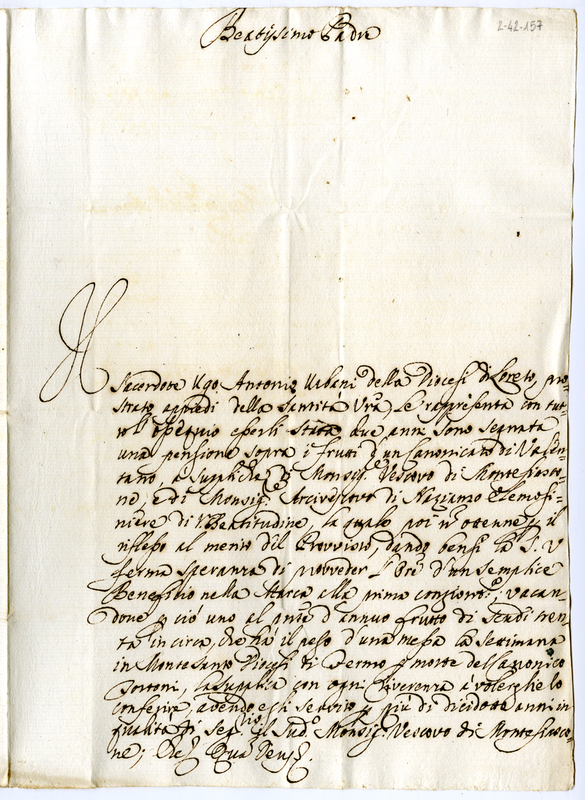 Beatissimo Padre
2-42-157
Il
Sacerdote Ugo Antonio Urbani della Diocesi di Loreto, pro=
strato a piedi della Santità Vra Le rappresenta con tut=
to l'ossequio esserli Stata due anni sono segnata
una pensione sopra i frutti d'un Canonicato di Valen=
tano, a Supplica di Monsig.r Vescovo di Montefiasco=
ne, e di Monsig.r Arcivescovo di Nazianzo Elemosi=
niere di Beatitudine, la quale poi ñ ottenne il
riflesso al merito del Provvisto, dando bensi la S. V
ferma speranza di provveder l'Ore d'un semplice
Benefizio nella Marca alla prima congiont.a; vacan=
done ciò uno al pñte d'annuo frutto di Scudi tren=
ta in circa, che hà il peso d'una messa la settimana
in Montesanto Diocesi di Fermo morte del Canonico
la supplica con ogni riverenza à volerglie lo
conferire, avendo egli servito più di dicidotto anni in
qualità di il Sud.o Monsig.r Vescovo di Montefiasco=
ne; Che